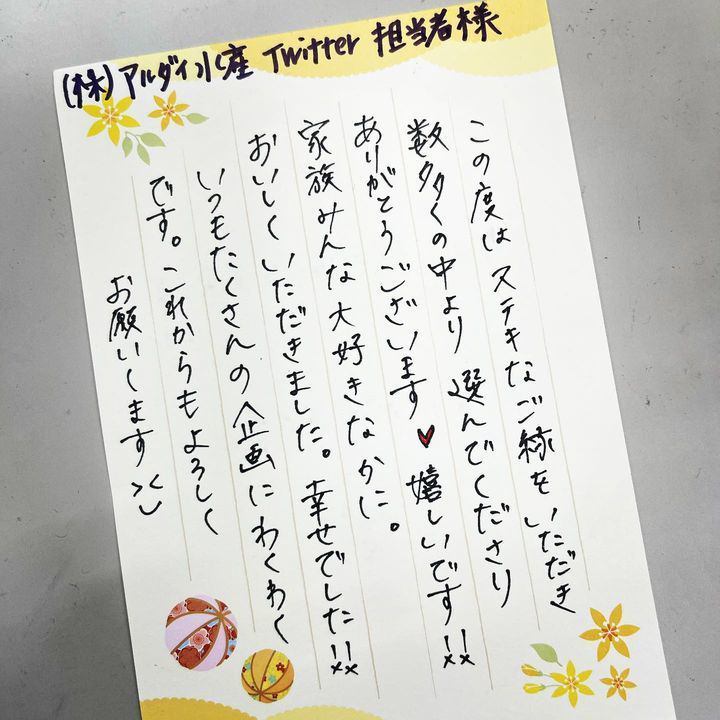 (株)アルダイ水産 Twitter 担当者様
この度はステキなご縁をいただき
数多くの中より 選んでくださり
ありがとうございます♥ 嬉しいです!!
家族みんな大好きなかに。
おいしくいただきました。幸せでした!!
いつもたくさんの企画にわくわく
です。これからもよろしく
お願いします